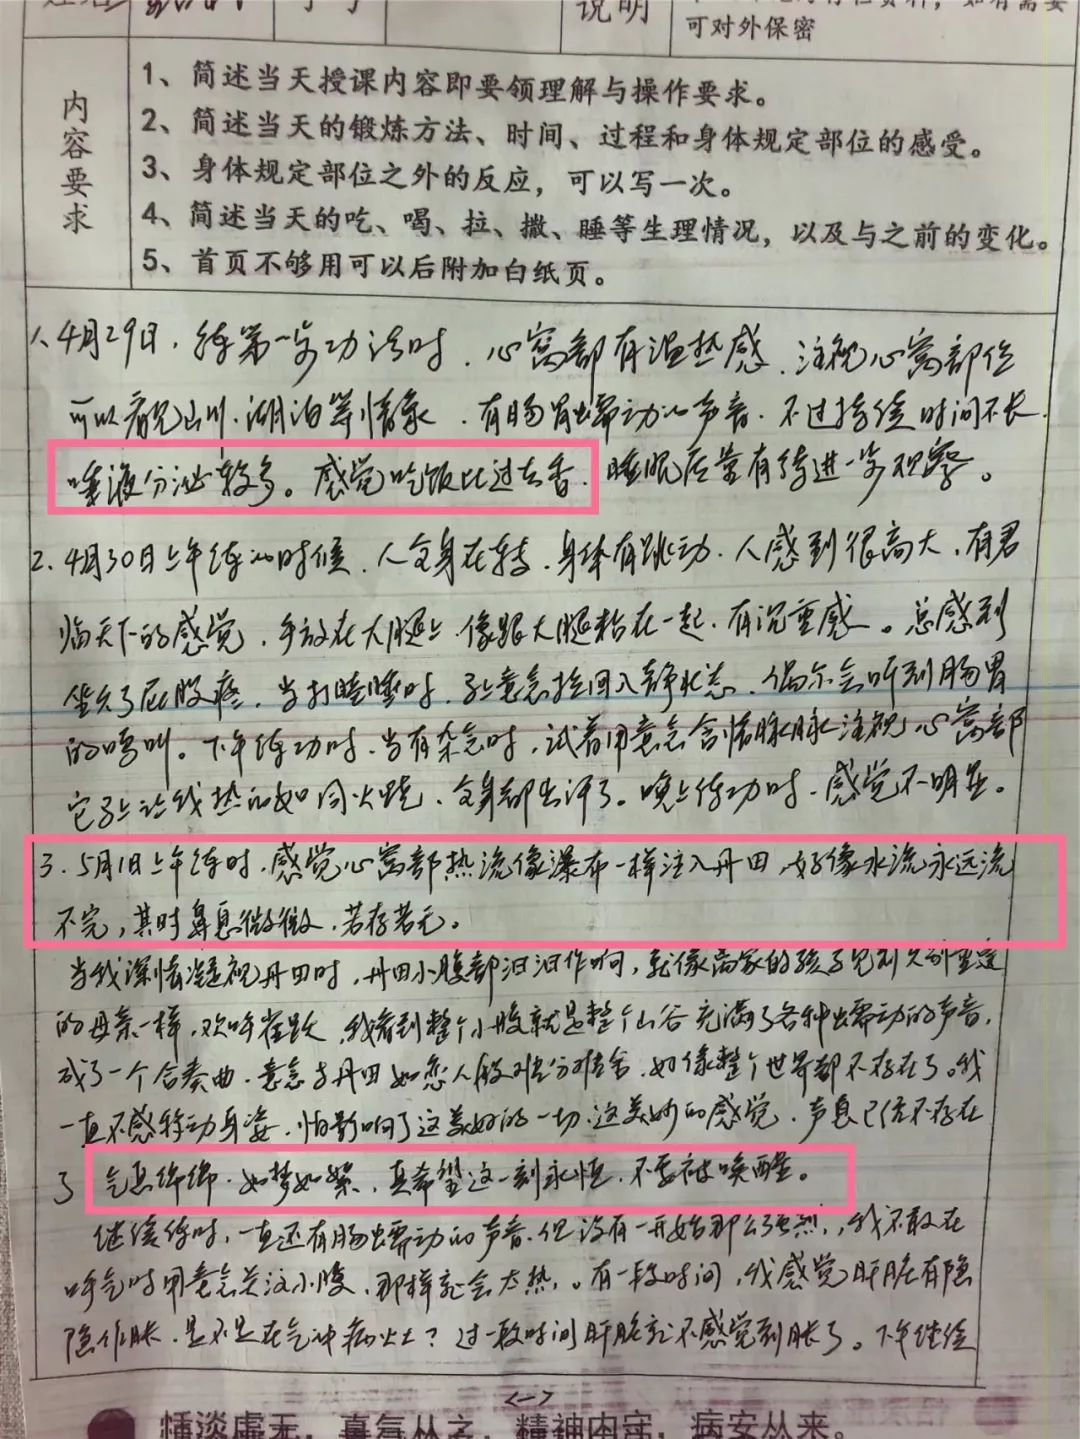 说明
可对外保密
内容要求
1、简述当天授课内容即要领理解与操作要求。
2、简述当天的锻炼方法、时间、过程和身体规定部位的感受。
3、身体规定部位之外的反应，可以写一次。
4、简述当天的吃、喝、拉、撒、睡等生理情况，以及与之前的变化。
5、首页不够用可以后附加白纸页。
1、4月29日，练第一步功法时，心窝部有温热感，注视心窝部位
可以看见山川、湖泊等情象，有肠胃蠕动的声音，不过持续时间不长，
唾液分泌较多。感觉吃饭比过去香，睡眠质量有待进一步观察。
2.4月30日上午练的时候，人全身在转，身体有跳动，人感到很高大，有君
临天下的感觉，手放在大腿上，像跟大腿粘在一起，有沉重感。总感到
坐久了屁股疼，当打瞌睡时，马上意念拉回入静状态，偶尔会听到肠胃
的鸣叫。下午练功时，当有杂念时，试着用意念含情脉脉注视心窝部
它马上让我热的如同火烧，全身都出汗了。晚上练功时，感觉不明显。
3.5月1日上午练时，感觉心窝部热流像瀑布一样注入丹田，好像水流永远流
不完，其时鼻息微微，若存若无。
当我深情凝视丹田时，丹田小腹部汩汩作响，就像离家的孩子见到久别重逢
的母亲一样，欢呼雀跃，我看到整个小腹就是整个山谷充满了各种蠕动的声音，
成了一个合奏曲，意念与丹田如恋人般难分难舍，好像整个世界都不存在了。我
一直不感移动身姿，怕影响了这美好的一切，这美妙的感觉，声息已经不存在
了，气息绵绵，如梦如絮，真希望这一刻永恒，不要被唤醒。
继续练时，一直还有肠蠕动的声音，但没有一开始那么强烈，我不敢在
呼气时用意念关注小腹，那样就会太热，。有一段时间，我感觉肝脏有隐
隐作胀，是不是在气冲病灶？过一段时间肝脏就不感觉到胀了。下午继续
<一>
恬淡虚无，真气从之，精神内守，病安从来。